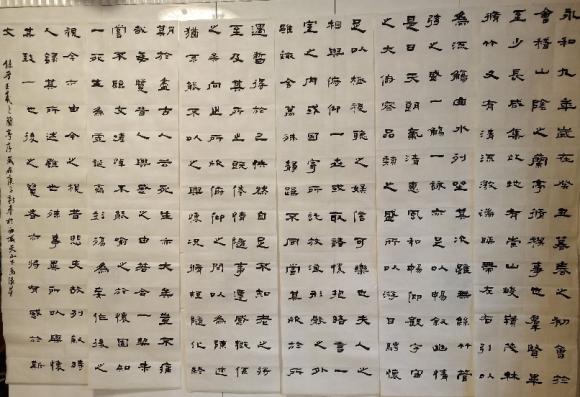 永和九年歲在癸丑暮春之初會於
會稽山陰之蘭亭脩禊事也羣賢畢
至少長咸集此地有崇山峻嶺茂林
脩竹又有清流激湍映帶左右引以
為流觴曲水列坐其次雖無絲竹管
弦之盛一觴一詠亦足以暢敘幽情
是日也天朗氣清惠風和暢仰觀宇宙
之大俯察品類之盛所以游目騁懷
足以極視聽之娛信可樂也夫人之
相與俯仰一世或取諸懷抱晤言一
室之內或因寄所託放浪形骸之外
雖趣舍萬殊靜躁不同當其欣於所
遇暫得於己快然自足不知老之將
至及其所之既倦情隨事遷感慨係
之矣向之所欣俛仰之間以為陳迹
猶不能不以之興懷況脩短隨化終
期於盡古人云死生亦大矣豈不痛
哉每覽昔人興感之由若合一契未
嘗不臨文嗟悼不能喻之於懷固知
一死生為虛誕齊彭殤為妄作後之
視今亦由今之視昔悲夫故列敘時
人錄其所述雖世殊事異所以興懷
其致一也後之覽者亦將有感於斯
文
晉王羲之蘭亭序歲在庚子